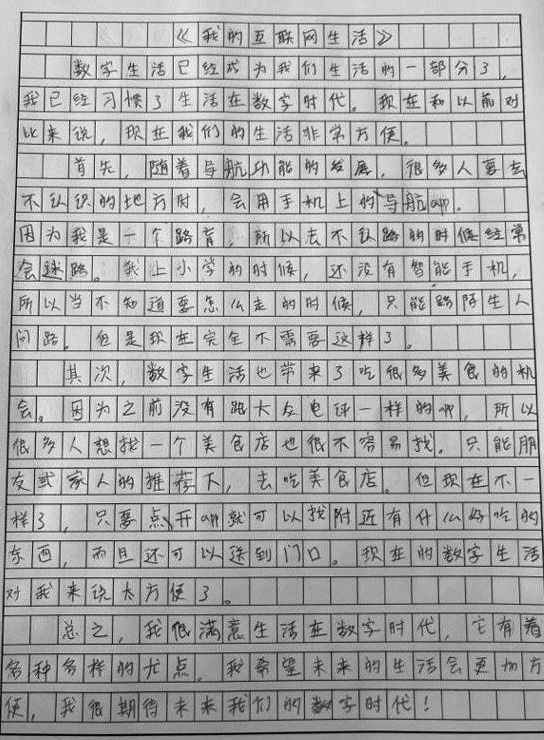 《我的互联网生活》
数字生活已经成为我们生活的一部分了，
我已经习惯了生活在数字时代。现在和以前对
比来说，现在我们的生活非常方便。
首先，随着导航功能的发展，很多人要去
不认识的地方时，会用手机上的导航app。
因为我是一个路盲，所以去不认路的时候经常
会迷路。我上小学的时候，还没有智能手机，
所以当不知道要怎么走的时候，只能跟陌生人
问路。但是现在完全不需要这样了。
其次，数字生活也带来了吃很多美食的机
会。因为之前没有跟大众电评一样的app，所以
很多人想找一个美食店也很不容易找。只能朋
友或家人的推荐下，去吃美食店。但现在不一
样了，只要点开app就可以找附近有什么好吃的
东西，而且还可以送到门口。现在的数字生活
对我来说太方便了。
总之，我很满意生活在数字时代，它有着
各种各样的优点。我希望未来的生活会更加方
便，我很期待未来我们的数字时代！